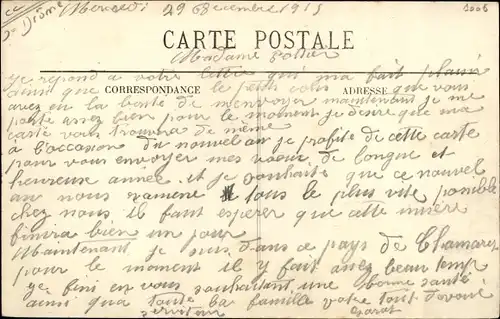 Mercredi 29 Decembre 1915
Drome
CARTE POSTALE
Madame
CORRESPONDANCE
ADRESSE
je repond a votre lettre qui ma fait plaisir
ainsi que le petit colis que vous
avez eu la bonté de menvoyer maintenant je me
porte assez bien pour le moment je desire que ma
carte vous trouvera de même
à l'occasion du nouvel an je profite de cette carte
pour vous envoyer mes voeux de longue et
heureuse année et je souhaite que ce nouvel
an nous ramene tous le plus vite possible
chez nous il faut esperer que cette misère
finira bien un jour
Maintenant je suis dans ce pays de Chamaret
pour le moment il y fait assez beau temp
je fini en vous souhaitant une Bonne santé
ainsi que toute la famille votre tout devoué
serviteur